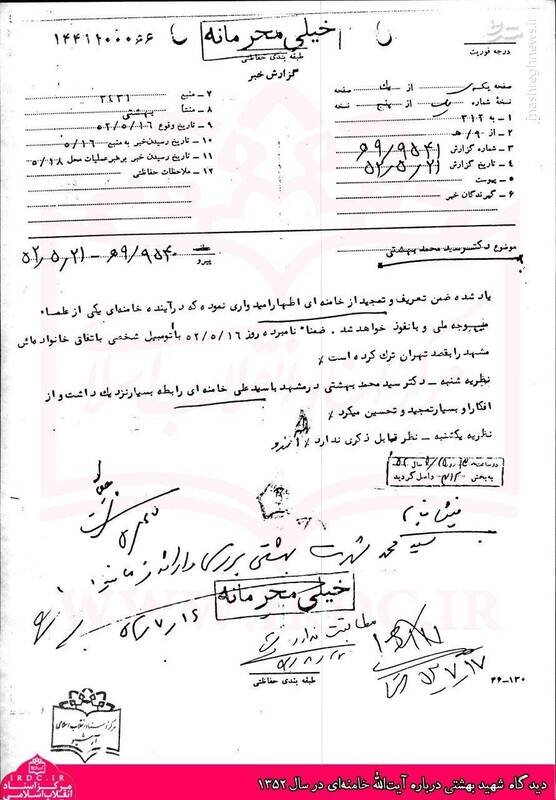 خیلی محرمانه
طبقه بندی حفاظتی
گزارش خبر
درجه فوریت
صفحه یکم از یک صفحه
نسخه شماره یک از پنج نسخه
۱ - به ۳۱۲
۲ - از ۹/ﻫ
۳ - شماره گزارش ۶۹/۹۵۴۱
۴ - تاریخ گزارش ۵۲٫۵٫۲۱
۵ - پیوست
۶ - گیرندگان خبر
۷ - منبع ۲۴۳۱
۸ - منشأ بهشتی
۹ - تاریخ وقوع ۵۲/۵/۱۶
۱۰ - تاریخ رسیدن خبر به منبع ۵/۱۶
۱۱ - تاریخ رسیدن خبر به رهبر عملیات محل ۵/۱۸
۱۲ - ملاحظات حفاظتی
موضوع دکتر سید محمد بهشتی
پیرو ۶۹/۹۵۴۰ - ۵۲٫۵٫۲۱
یاد شده ضمن تعریف و تمجید از خامنه ای اظهار امیدواری نموده که در آینده خامنه‌ای یکی از علماء
موجه ملی و بانفوذ خواهد شد . ضمناً نامبرده روز ۵۲/۵/۱۶ با اتومبیل شخصی باتفاق خانواده‌اش
مشهد را بقصد تهران ترک کرده است ٪
نظریه شنبه - دکتر سید محمد بهشتی در مشهد با سید علی خامنه ای رابطه بسیار نزدیک داشت و از
افکار او بسیار تمجید و تحسین میکرد ٪
نظریه یکشنبه - نظر قابل ذکری ندارد ٪
به بخش ۳۱۲ واصل گردید
سید محمد شهرت بهشتی بررسی و ارائه فرمائید
خیلی محرمانه
طبقه بندی حفاظتی
۴۶-۱۳۰
مرکز اسناد انقلاب اسلامی
آرشیو
IRDC.IR
مرکز اسناد
انقلاب اسلامی
دیدگاه شهید بهشتی درباره آیت‌الله خامنه‌ای در سال ۱۳۵۲
mashreghnews.ir